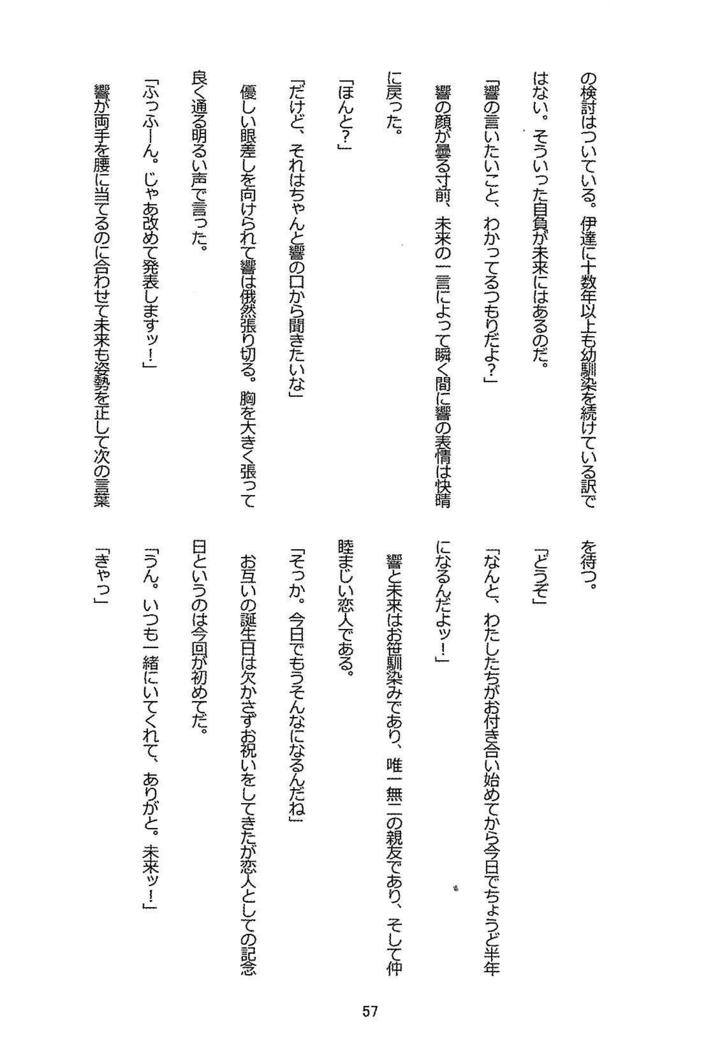 の検討はついている。伊達に十数年以上も幼馴染を続けている訳で
はない。そういった自負が未来にはあるのだ。
「響の言いたいこと、わかってるつもりだよ？」
響の顔が曇る寸前、未来の一言によって瞬く間に響の表情は快晴
に戻った。
「ほんと？」
「だけど、それはちゃんと響の口から聞きたいな」
優しい眼差しを向けられて響は俄然張り切る。胸を大きく張って
良く通る明るい声で言った。
「ふっふーん。じゃあ改めて発表しますッ！」
響が両手を腰に当てるのに合わせて未来も姿勢を正して次の言葉
を待つ。
「どうぞ」
「なんと、わたしたちがお付き合い始めてから今日でちょうど半年
になるんだよッ！」
響と未来はお笹馴染みであり、唯一無二の親友であり、そして仲
睦まじい恋人である。
「そっか。今日でもうそんなになるんだね」
お互いの誕生日は欠かさずお祝いをしてきたが恋人としての記念
日というのは今回が初めてだ。
「うん。いつも一緒にいてくれて、ありがと。未来ッ！」
「きゃっ」
57